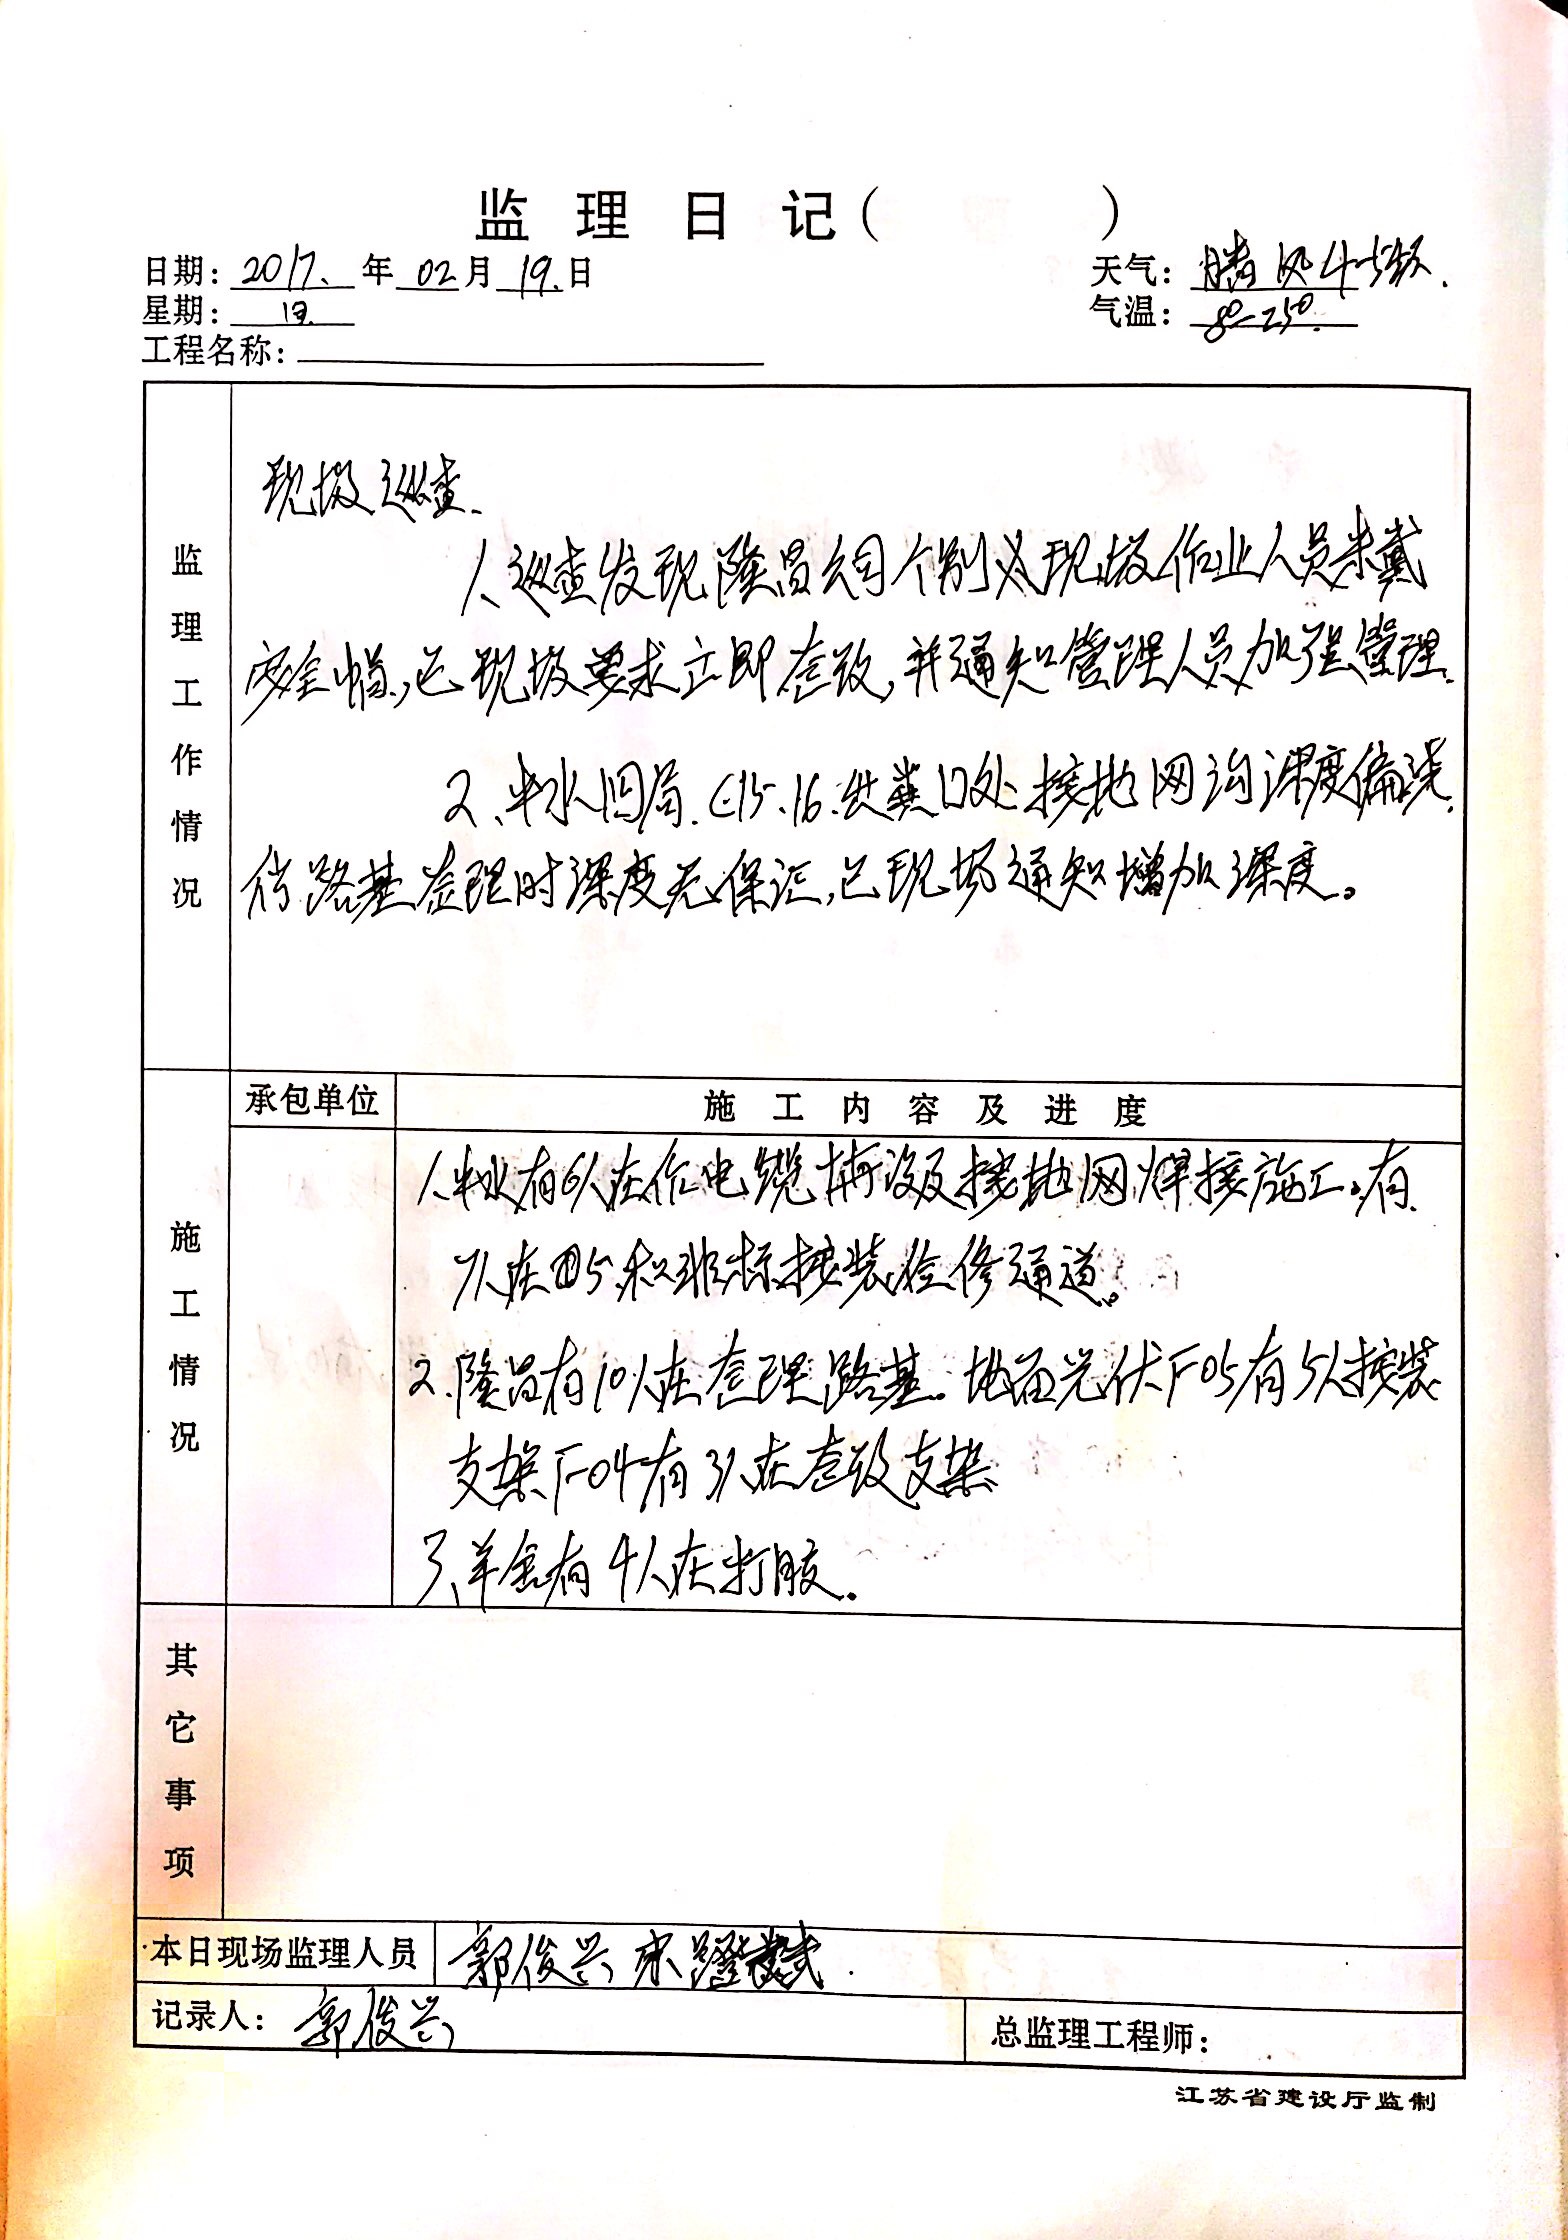 监理日记(　　　)
日期: 2017. 年 02 月 19. 日 天气: 晴 风4-5级.
星期: 日. 气温: 8°-25°.
工程名称:
监理工作情况
现场巡查.
1、巡查发现隆昌公司个别 现场作业人员未戴
安全帽,已现场要求立即整改,并通知管理人员加强管理.
2、中水四局.C15.16.进 口处接地网沟深度偏浅.
待路基整理时深度无保证,已现场通知增加深度。
施工情况
承包单位 施工内容及进度
1、中水有6人在作电缆 设及接地网焊接施工。有
7人在 5.和非标按装检修通道。
2.隆昌有10人在整理路基。地面光伏F05有5人按装
支架F-04有3人在整改支架
3、羊舍有4人在打胶。
其它事项
本日现场监理人员 郭俊兴 宋
记录人: 郭俊兴 总监理工程师:
江苏省建设厅监制